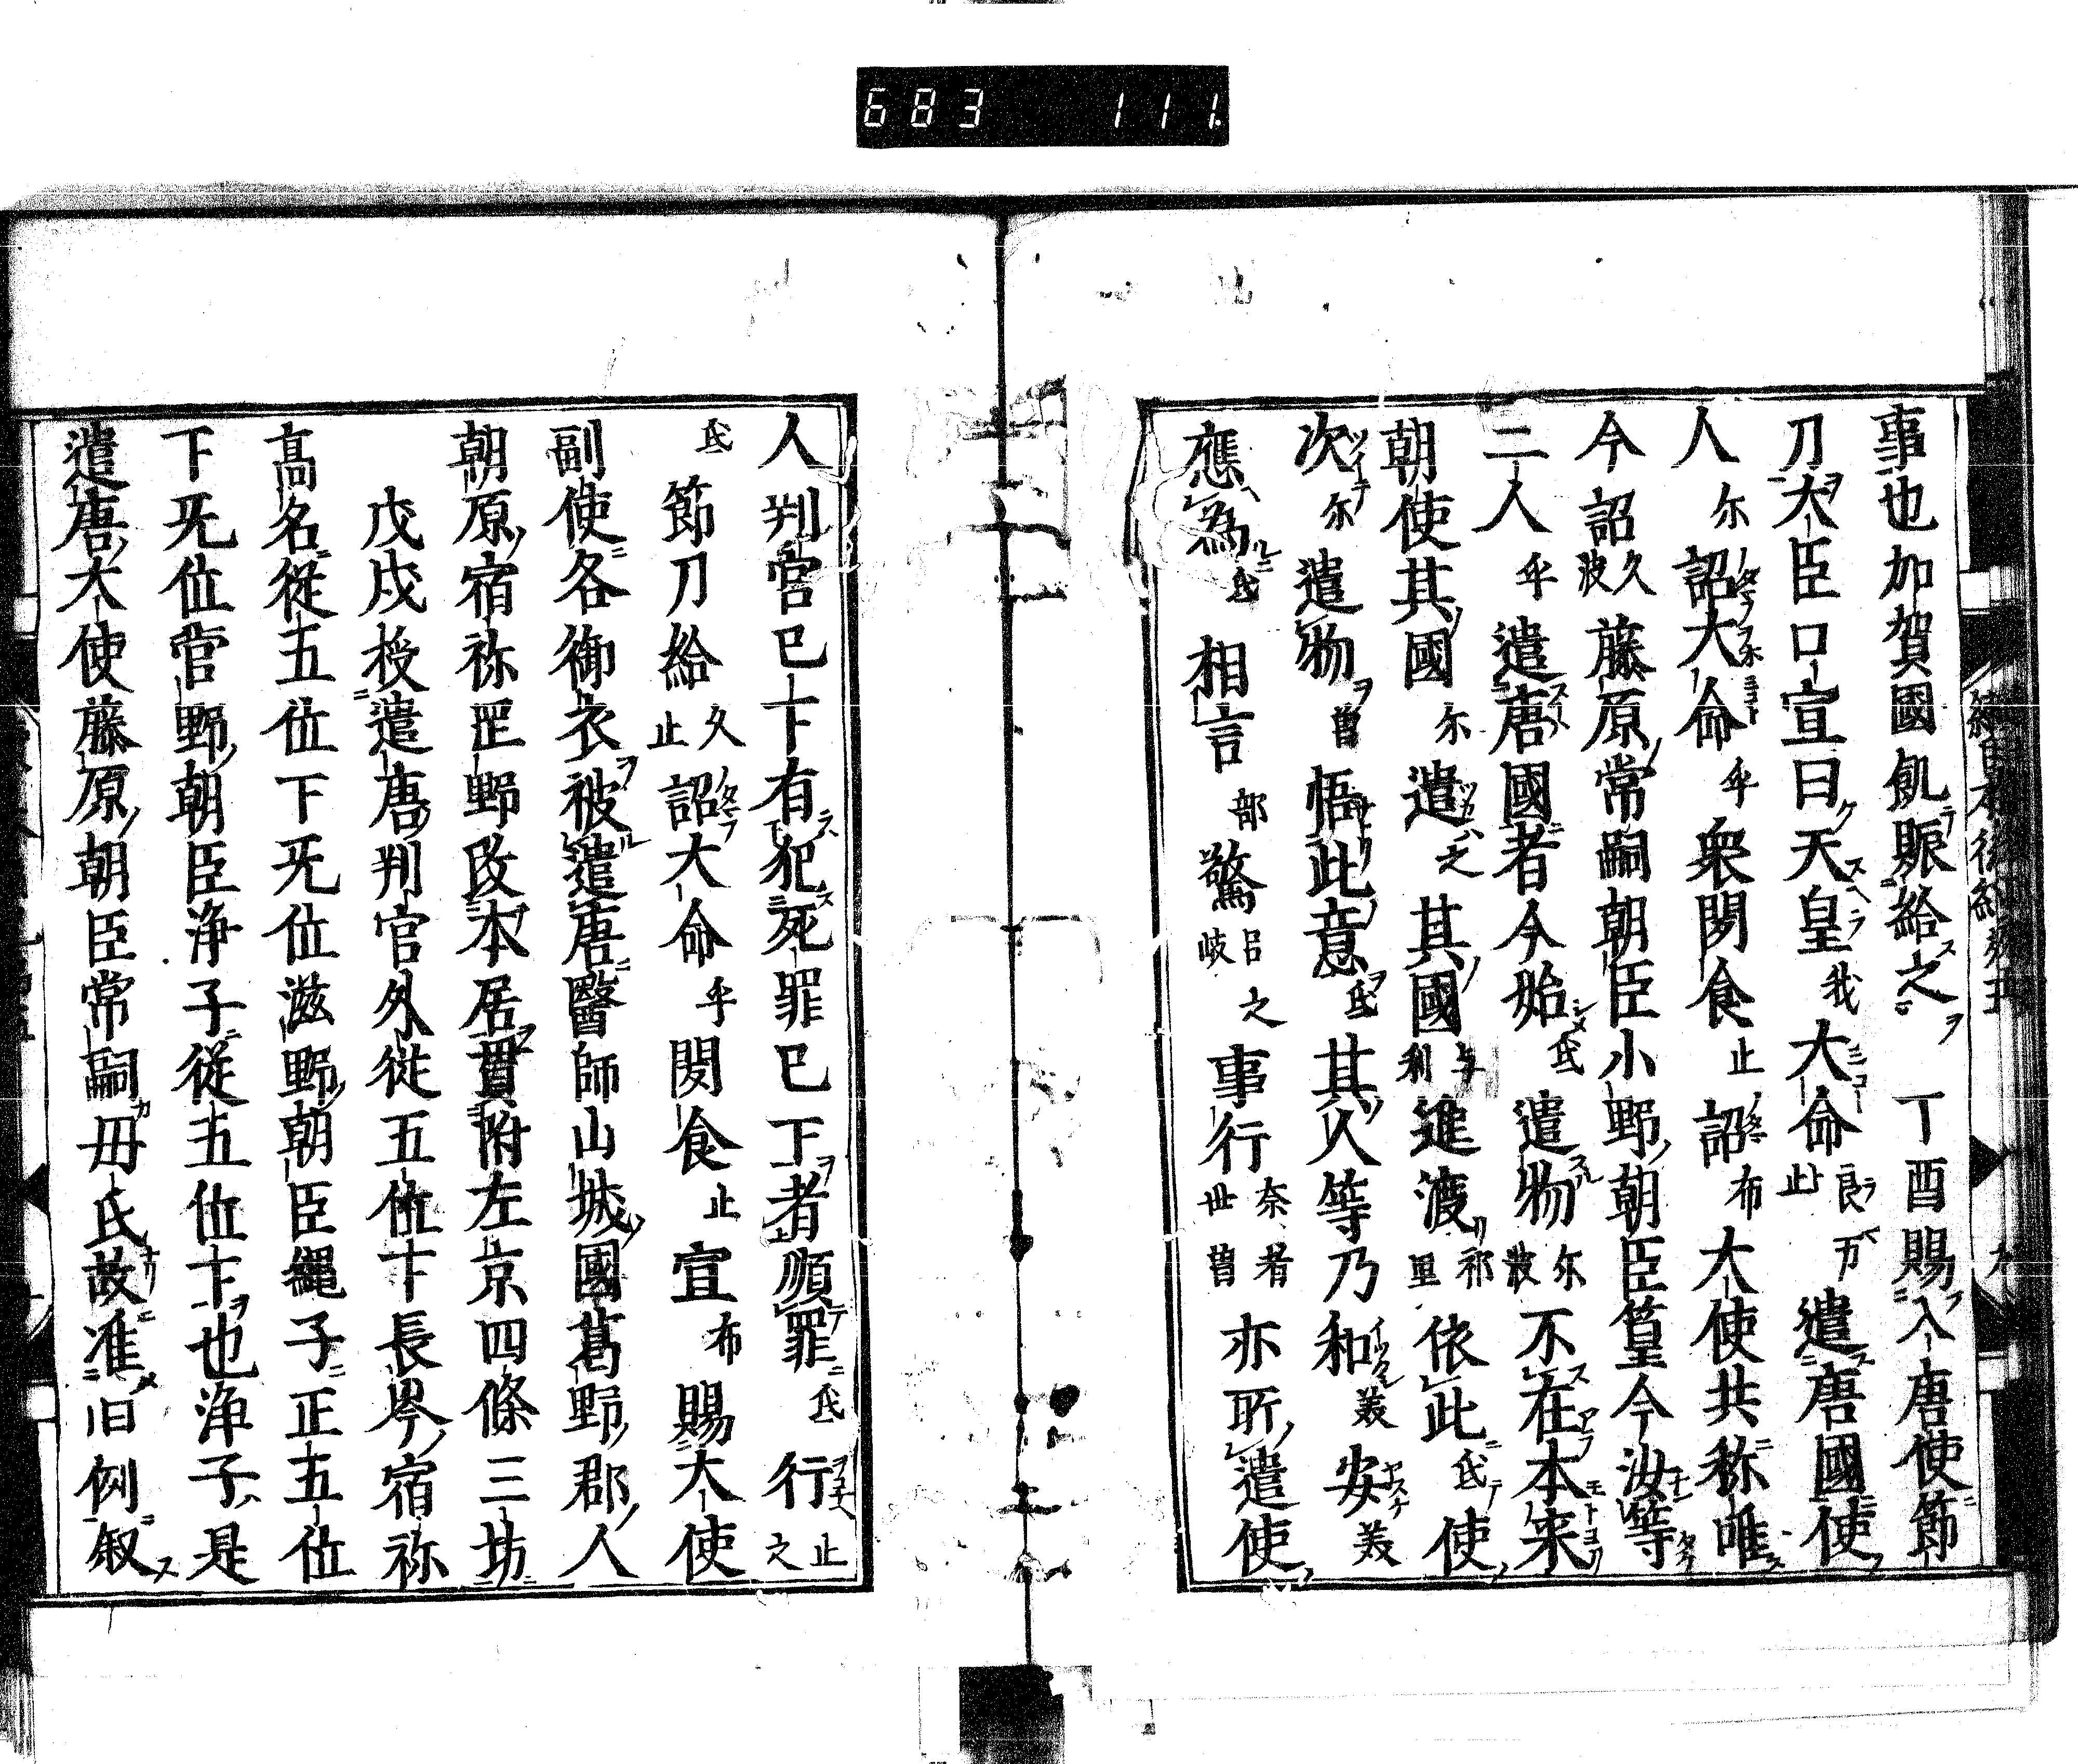 683 111
事也加賀國飢賑給之丁酉賜入唐使節
刀大臣口宣曰天皇我大命良万止遣唐國使
人尓詔大命乎衆聞食止詔布大使共称唯
今詔久波藤原常嗣朝臣小野朝臣篁今汝等
二人乎遣唐國者今始氐遣物尓波不在本来
朝使其國尓遣之其國与利進渡祁里依此氐使
次尓遣物曽悟此意氐其人等乃和美安美
應為氐相言部驚呂岐之事行奈世曽者亦所遣使
人判官已下有犯死罪已下者順罪氐行止之
氐節刀給久止詔大命乎聞食止宣布賜大使
副使各御衣被遣唐醫師山城國葛野郡人
朝原宿祢罡野改本居貫附左京四條三坊
戊戌授遣唐判官外従五位下長岑宿祢
髙名従五位下旡位滋野朝臣繩子正五位
下旡位菅野朝臣浄子従五位下也浄子是
遣唐大使藤原朝臣常嗣毋氏故准旧例叙